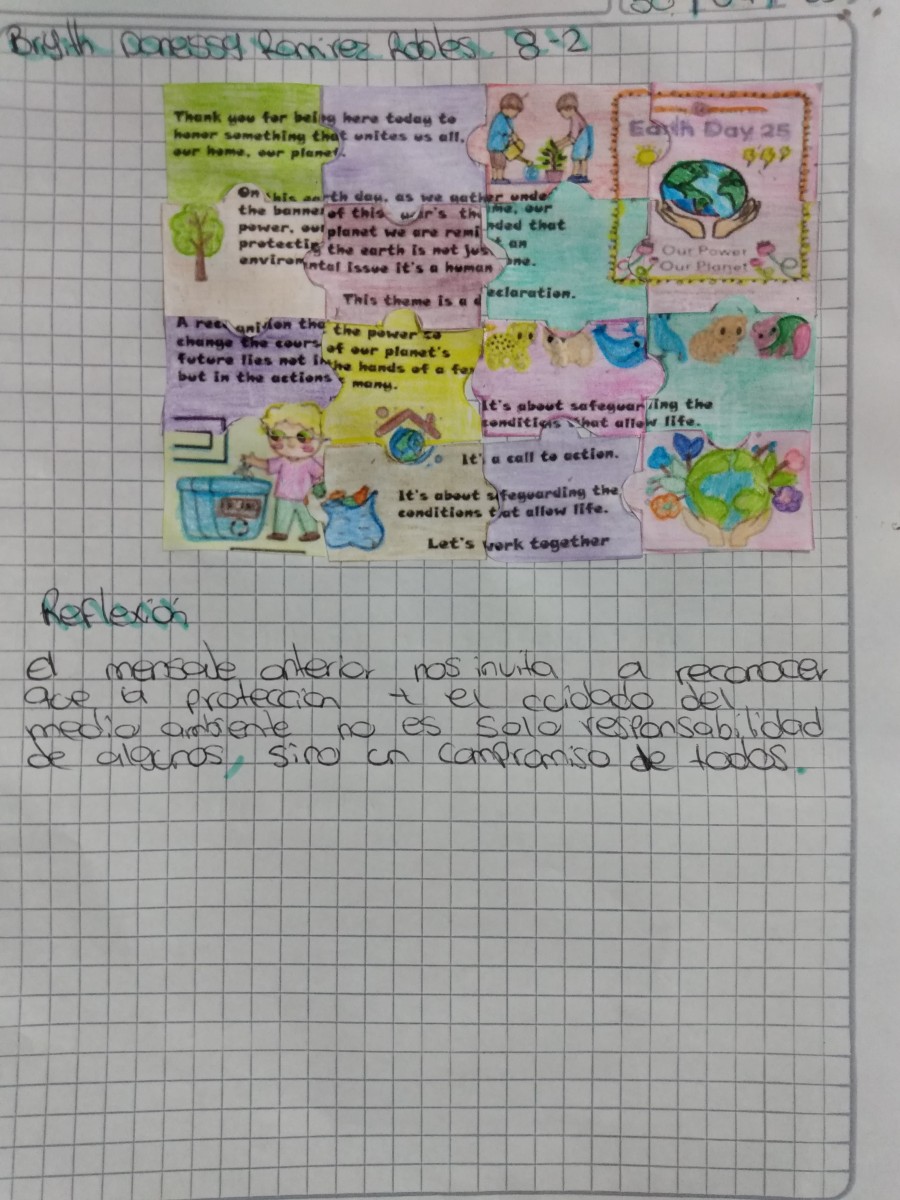 Brigith Danessa Ramirez Robles 8-2
Thank you for being here today to
honor something that unites us all,
our home, our planet.
Earth Day 25
Our Power
Our Planet
On this earth day, as we gather unde
the banner of this year's theme, our
power, our planet we are reminded that
protecting the earth is not just an
environmental issue it's a human one.
This theme is a declaration.
A recognition the the power to
change the cours of our planet's
future lies not in the hands of a few
but in the actions many.
It's about safeguarding the
conditions that allow life.
It's a call to action.
It's about safeguarding the
conditions that allow life.
Let's work together
Reflexión
el mensaje anterior nos invita a reconocer
que la protección y el cuidado del
medio ambiente no es solo responsabilidad
de algunos, sino un compromiso de todos.